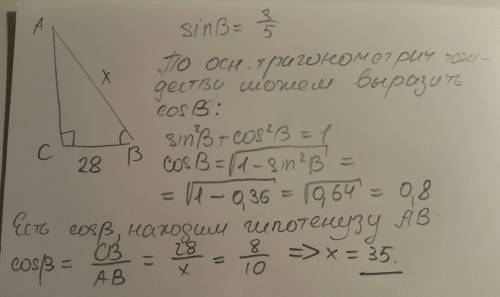 A
x
C
28
B
sinB = 3/5
По осн. тригонометрич. тож-
деству можем выразить
cosB:
sin²B + cos²B = 1
cosB = √(1 - sin²B) =
= √(1 - 0,36) = √(0,64) = 0,8
Есть cosβ, находим гипотенузу AB:
cosβ = CB/AB = 28/x = 8/10 => x = 35.